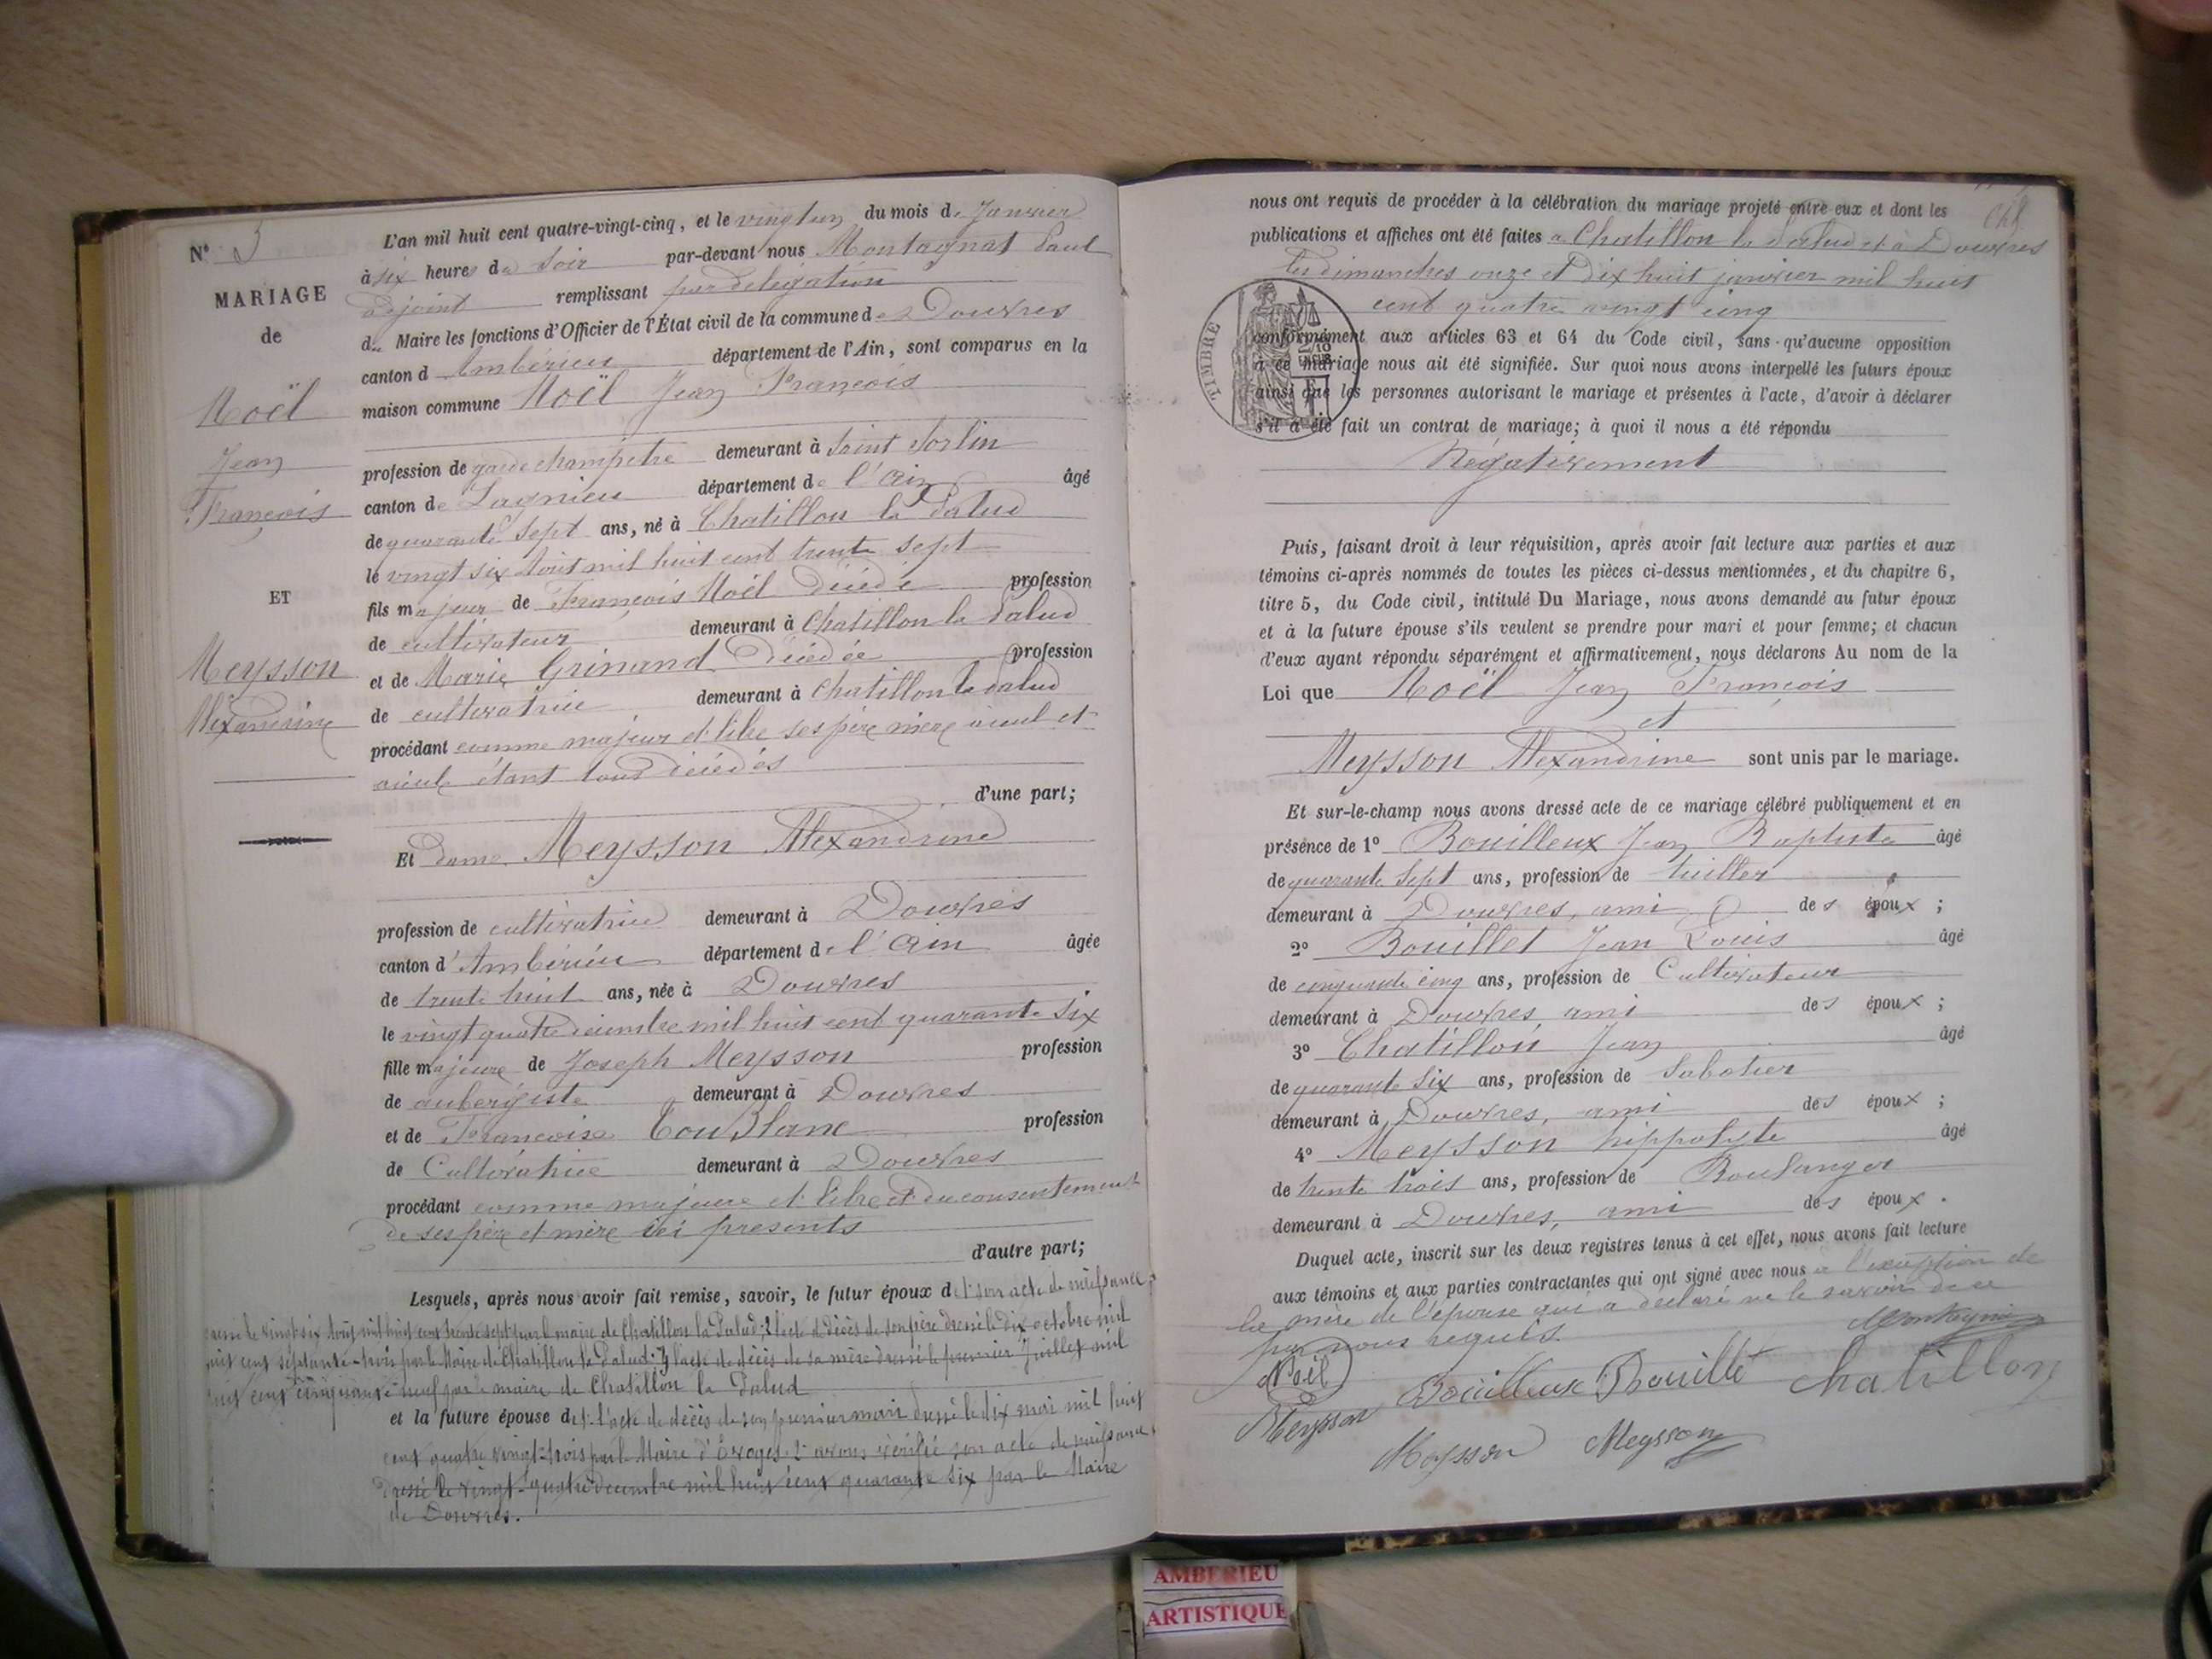 N° 3
MARIAGE
de
Noël
Jean
François
ET
Meysson
Alexandrine
L'an mil huit cent quatre-vingt-cinq, et le vingt un du mois de Janvier
à six heures du Soir par-devant nous Montagnat Paul
adjoint remplissant par délégation
du Maire les fonctions d'Officier de l'État civil de la commune de Douvres
canton d Ambérieu département de l'Ain, sont comparus en la
maison commune Noël Jean François
profession de garde champêtre demeurant à Saint Sorlin
canton de Lagnieu département de l'Ain âgé
de quarante Sept ans, né à Chatillon la Palud
le vingt six Août mil huit cent trente sept
fils majeur de François Noël Décédé profession
de cultivateur demeurant à Chatillon la Palud
et de Marie Grinand Décédée profession
de cultivatrice demeurant à Chatillon la Palud
procédant comme majeur et libre ses père mère aïeul et
aïeule étant tous décédés
d'une part;
Et dame Meysson Alexandrine
profession de cultivatrice demeurant à Douvres
canton d'Ambérieu département de l'Ain âgée
de trente huit ans, née à Douvres
le vingt quatre décembre mil huit cent quarante Six
fille majeure de Joseph Meysson profession
de aubergiste demeurant à Douvres
et de Françoise profession
de Cultivatrice demeurant à Douvres
procédant comme majeure et libre et du consentement
de ses père et mère ici présents
d'autre part;
Lesquels, après nous avoir fait remise, savoir, le futur époux de 1° son acte de naissance
le vingt-six Août mil huit cent trente sept par le maire de Chatillon la Palud; 2 l'acte de décès de son père dressé le dix octobre mil
huit cent septante-trois par le Maire de Chatillon la Palud; 3 l'acte de décès de sa mère dressé le premier Juillet mil
huit cent cinquante neuf par le maire de Chatillon la Palud
et la future épouse de 1° l'acte de décès de son premier mari dressé le dix mai mil huit
cent quatre vingt-trois par le Maire d'Evoges 2° avons vérifié son acte de naissance
dressé le vingt-quatre décembre mil huit cent quarante six par le Maire
de Douvres.
nous ont requis de procéder à la célébration du mariage projeté entre eux et dont les
publications et affiches ont été faites à Chatillon la Palud et à Douvres
les dimanches onze et Dix huit janvier mil huit
cent quatre vingt cinq
conformément aux articles 63 et 64 du Code civil, sans qu'aucune opposition
à ce mariage nous ait été signifiée. Sur quoi nous avons interpellé les futurs époux
ainsi que les personnes autorisant le mariage et présentes à l'acte, d'avoir à déclarer
s'il a été fait un contrat de mariage; à quoi il nous a été répondu
Négativement
TIMBRE
Puis, faisant droit à leur réquisition, après avoir fait lecture aux parties et aux
témoins ci-après nommés de toutes les pièces ci-dessus mentionnées, et du chapitre 6,
titre 5, du Code civil, intitulé Du Mariage, nous avons demandé au futur époux
et à la future épouse s'ils veulent se prendre pour mari et pour femme; et chacun
d'eux ayant répondu séparément et affirmativement, nous déclarons Au nom de la
Loi que Noël Jean François
et
Meysson Alexandrine sont unis par le mariage.
Et sur-le-champ nous avons dressé acte de ce mariage célébré publiquement et en
présence de 1° Bouilleux Jean Baptiste âgé
de quarante Sept ans, profession de tuillier
demeurant à Douvres, ami des époux ;
2° Bouillet Jean Louis âgé
de cinquante cinq ans, profession de Cultivateur
demeurant à Douvres, ami des époux ;
3° Chatillon Jean âgé
de quarante Six ans, profession de Sabotier
demeurant à Douvres, ami des époux ;
4° Meysson hippolyte âgé
de trente trois ans, profession de Boulanger
demeurant à Douvres, ami des époux .
Duquel acte, inscrit sur les deux registres tenus à cet effet, nous avons fait lecture
aux témoins et aux parties contractantes qui ont signé avec nous à l'exception de
la mère de l'épouse qui a déclaré ne le savoir de ce
par nous requis.
Noël Bouilleux Bouillet Chatillon
Meysson Meysson Meysson
AMBERIEU
ARTISTIQUE